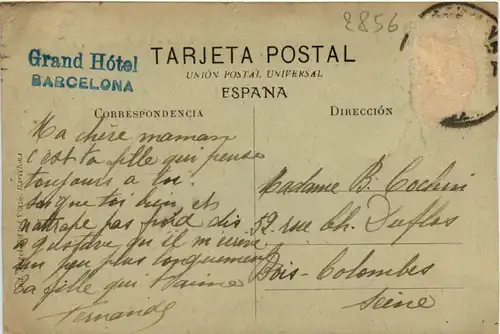 2856
Grand Hôtel
BARCELONA
TARJETA POSTAL
UNIÓN POSTAL UNIVERSAL
ESPAÑA
CORRESPONDENCIA
DIRECCIÓN
Ma chère maman
c'est ta fille qui pense
toujours a toi.
soigne toi bien, et
nattrape pas froid dis
a gustave, qu'il m'ecrive
un peu plus longuement
ta fille qui t'aime
Fernande
Madame B. Cochin
52 rue Ch. Duflos
Bois-Colombes
Seine